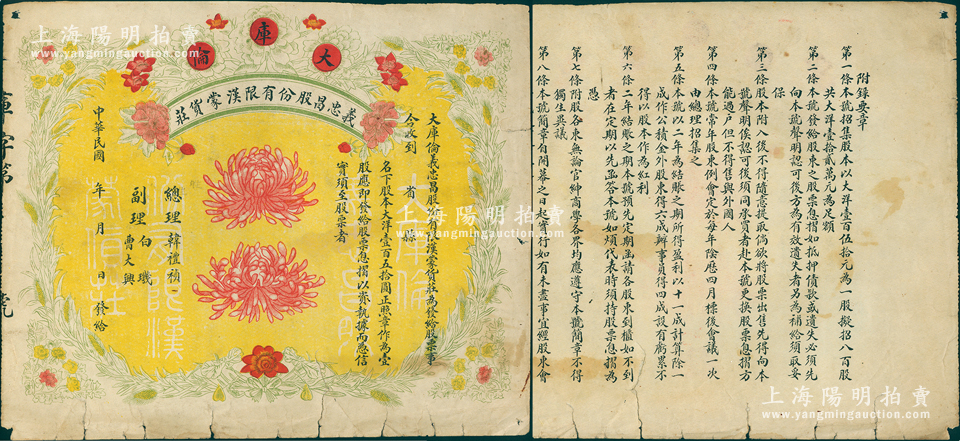 上海陽明拍賣
www.ymauction.com
大庫倫
義忠昌股份有限漢蒙貨莊
大庫倫義忠昌股份有限漢蒙貨莊為發給股票事
今收到　省　縣
名下股本大洋壹百五拾圓正照章作為壹
股應即發給股票息摺以資執據而憑信
實須至股票者
總理韓禮禎
副理白璣
曹大興
中華民國　年　月　日發給
庫字第　號
附錄要章
第一條本號招集股本以大洋壹百伍拾元為一股擬招八百股
共大洋壹拾貳萬元為足額
第二條本號發給股東之股票息摺如抵押債款或遺失必須先
向本號聲明認可後方為有效遺失者另為補給須取妥
保
第三條股本附入後不得隨意提取倘欲將股票出售先得向本
號聲明俟認可後須同承買者赴本號更換股票息摺方
能過戶但不得售與外國人
第四條本號常年股東例會定於每年陰歷四月標後會議一次
由總理招集之
第五條本號以二年為結賬之期所得盈利以十一成計算除一
成作公積金外股東得六成辦事員得四成設有虧累不
得以股本作為紅利
第六條二年結賬之期本號預先定期函請各股東到櫃如不到
者在定期以先函答本號如煩代表時須持股票息摺為
憑
第七條附股各東無論官紳商學各界均應遵守本號簡章不得
獨生異議
第八條本號簡章自開幕之日起實行如有未盡事宜經股東會
上海陽明拍賣
www.ymauction.com